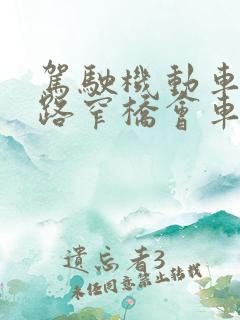 駕駛機動車
路窄橋會車
遺忘者3
未經同意禁止轉載